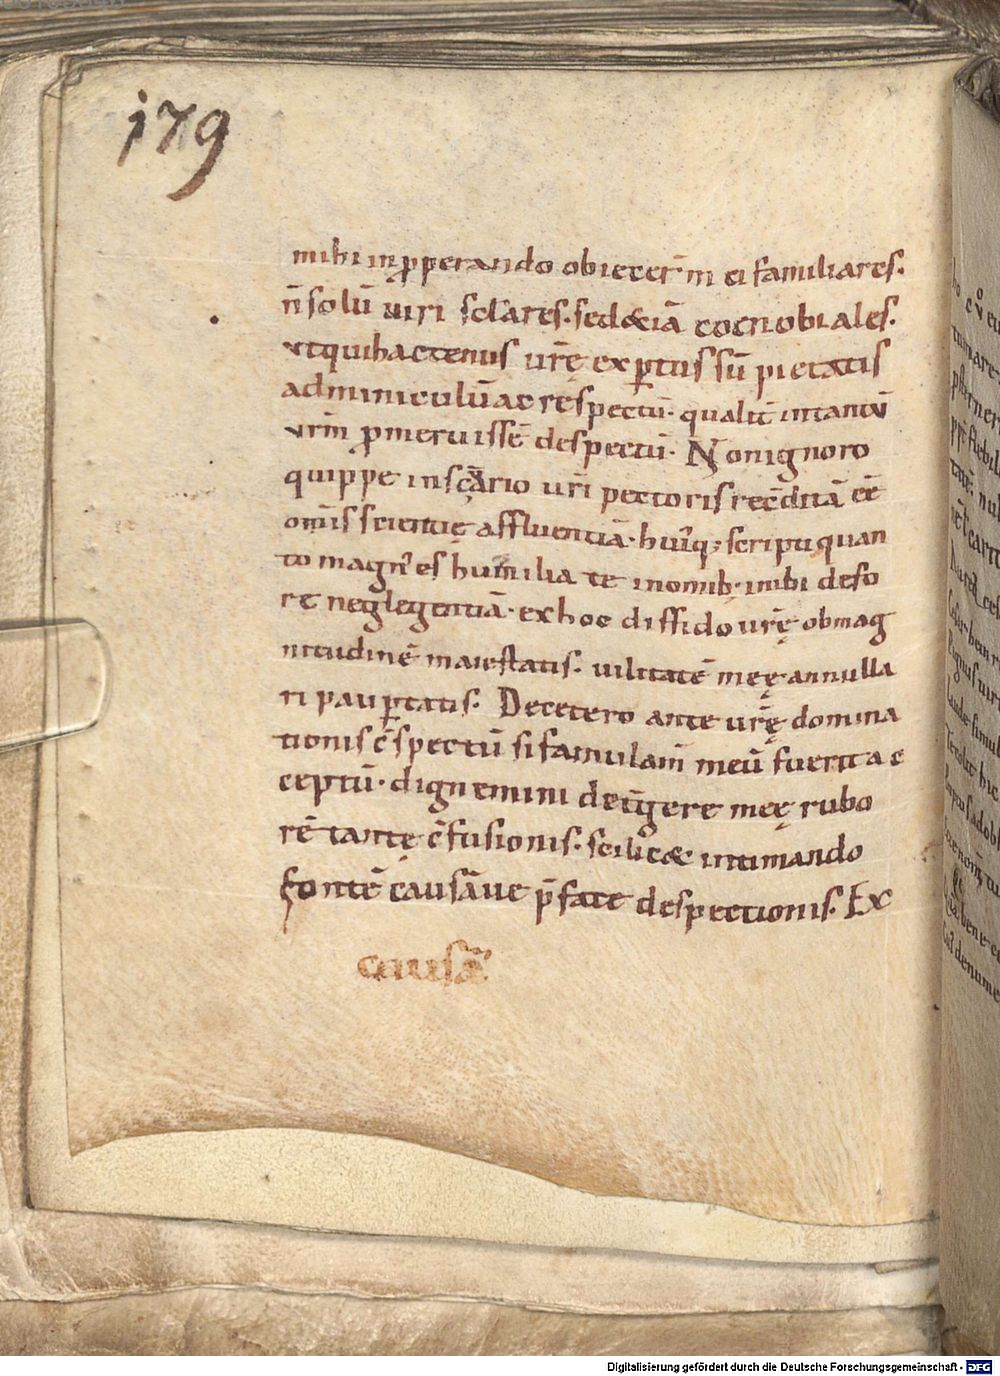 179
mihi inpperando obiecer̄ m̄ ei familiares.
n̄ solū uiri sclares. sed &iā coenobiales.
vt qui hactenus ur̄ę exptus sū pietatis
adminiculū ac respectū. qualit̄ in tantū
vrm̄ pmeruissē despectū. N̄ on ignoro
quippe in scrario uri pectoris recditā ēē
om̄is scientię affluentiā. huiq; scripti quan
to magis es humilia te in omib. inibi defo
re neglegentiā. ex hoc diffido urę ob mag
nitudinē maiestatis. uilitatē meę annulla
ri paup̱tatis. Decetero ante urę domina
tionis c̄spectū si famulam̄ meū fuerit ac
ceptū. dignemini det̄gere meę rubo
rē tantę c̄fusionis. scilic& intimando
fontē causāue p̄fate despectionis. Ex
causā
Digitalisierung gefördert durch die Deutsche Forschungsgemeinschaft - DFG